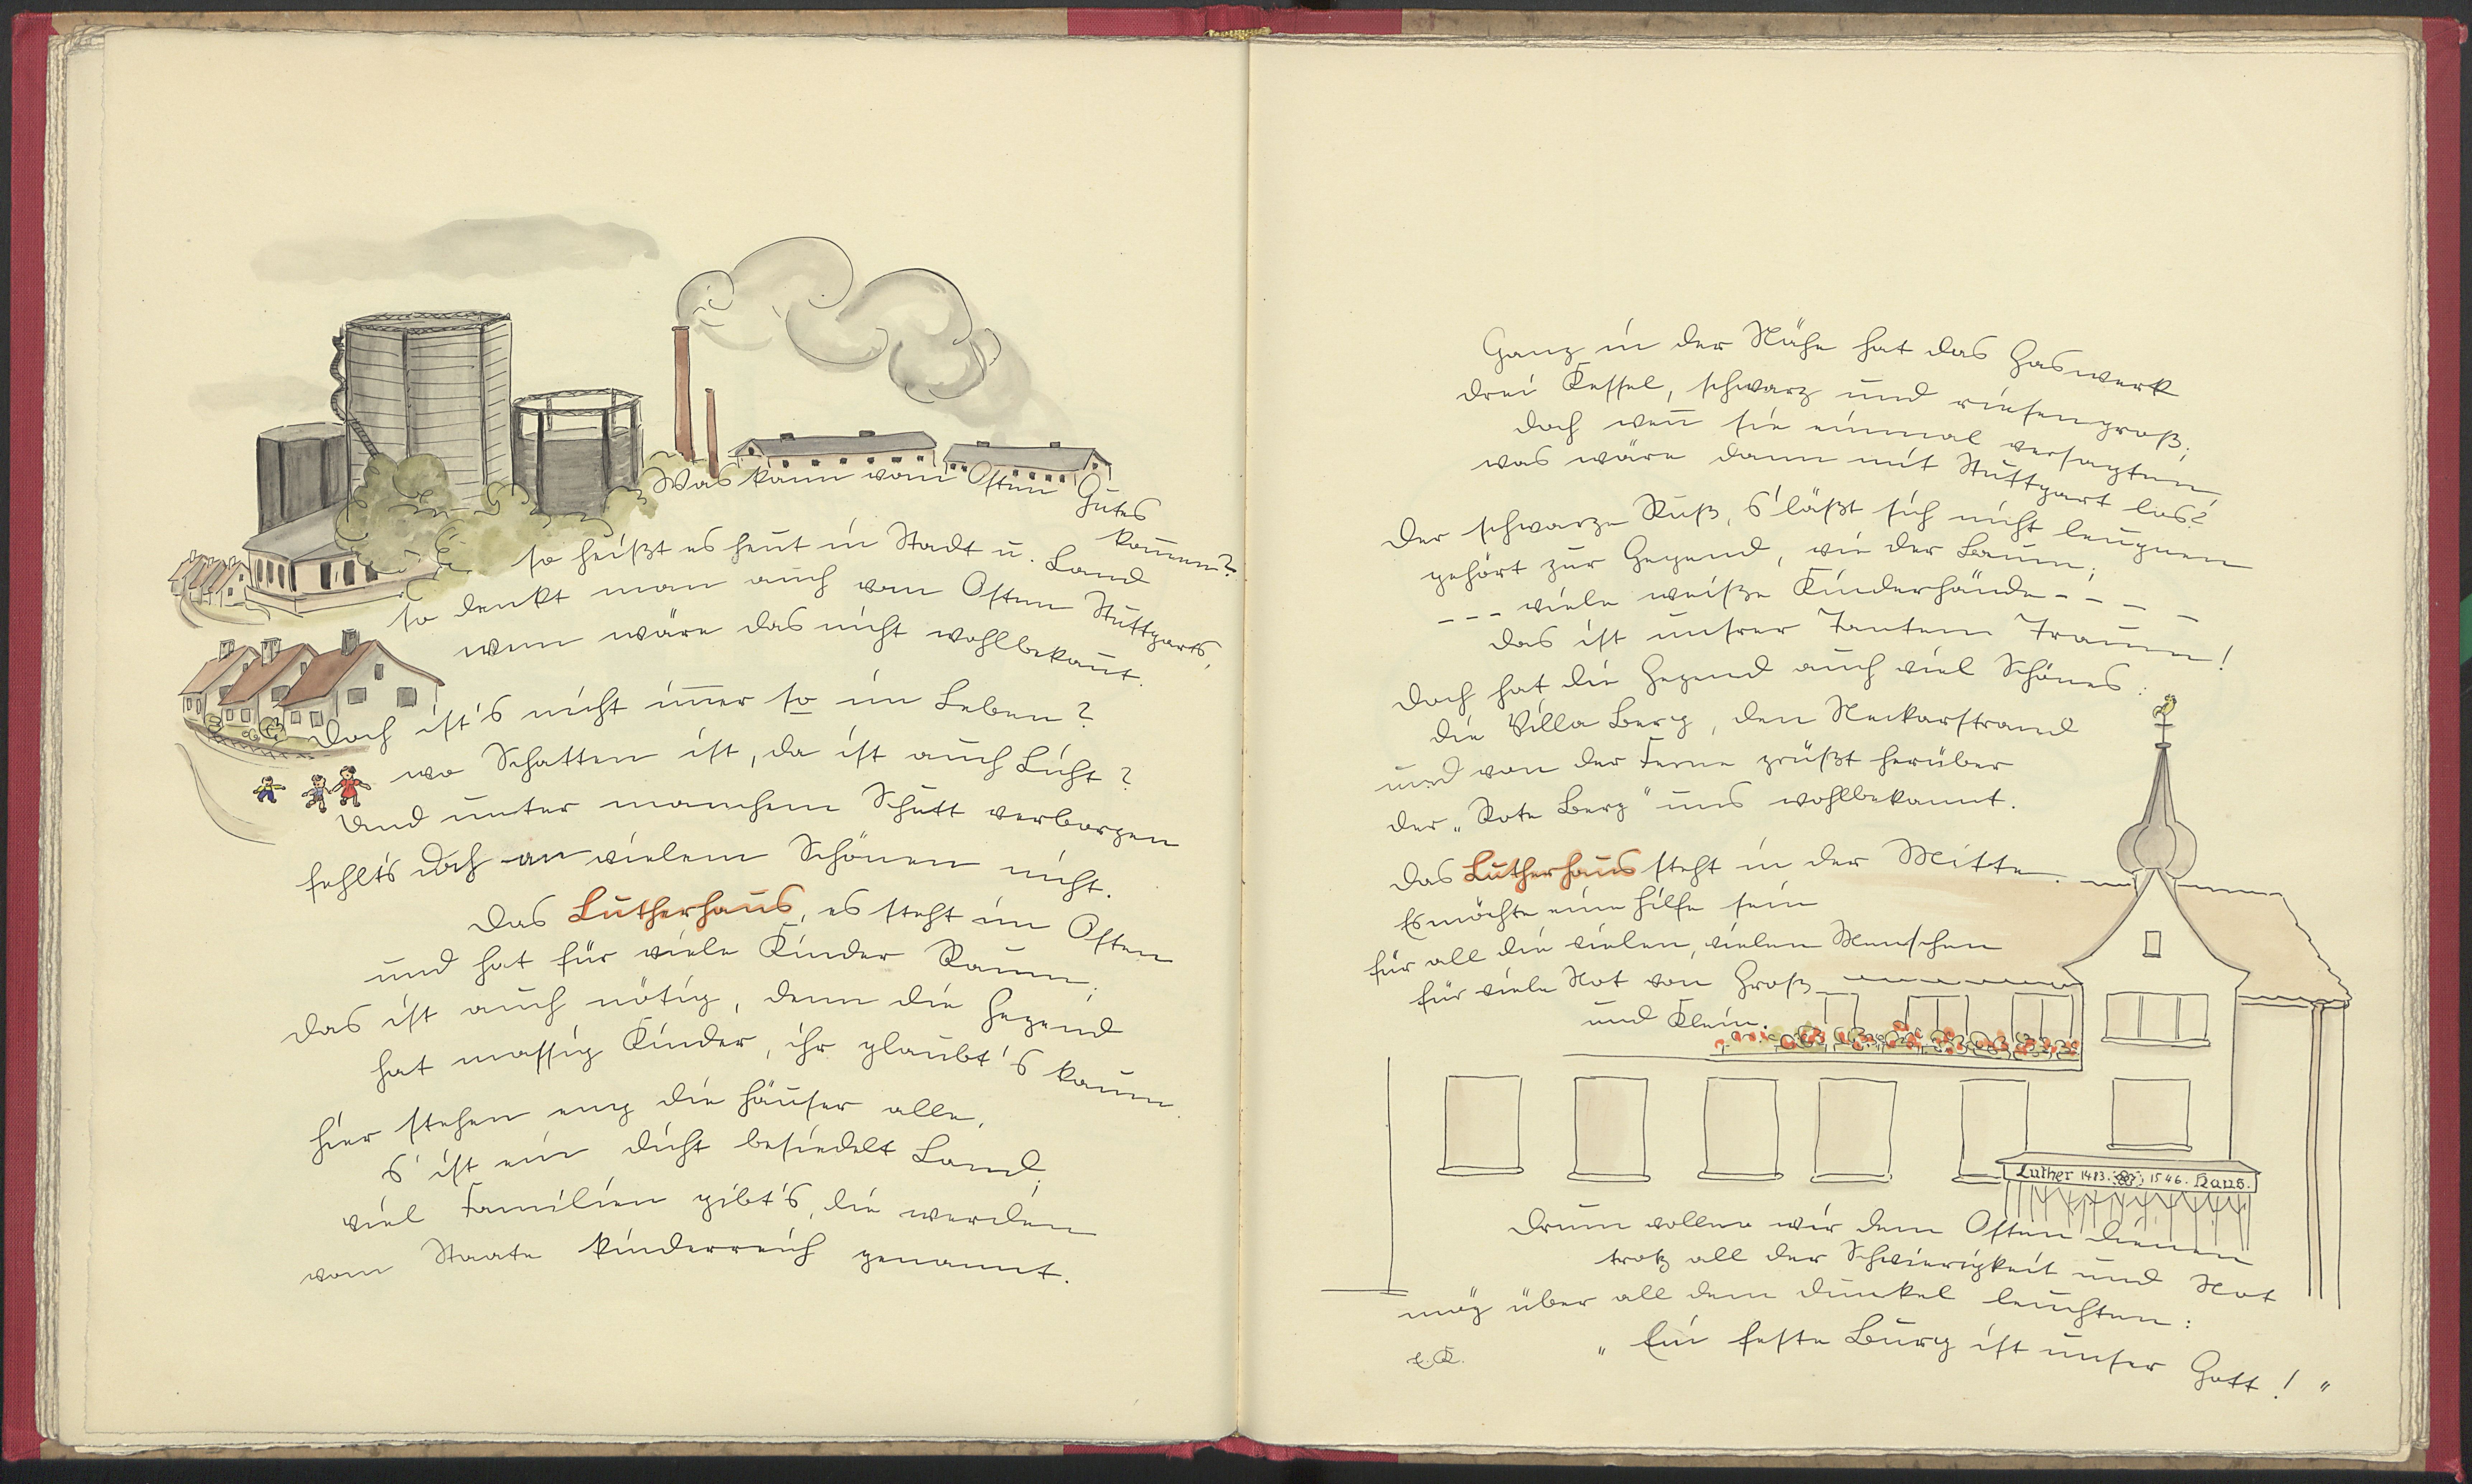 Was kann vom Osten Gutes
kom̅en?
so heißt es heut in Stadt u. Land
so denkt man auch vom Osten Stuttgarts,
wem wäre das nicht wohlbekan̅t.
Doch ist's nicht im̅er so im Leben?
wo Schatten ist, da ist auch Licht?
Und unter manchem Schutt verborgen
fehlt's doch an vielem Schönen nicht.
Das Lutherhaus, es steht im Osten
und hat für viele Kinder Raum;
das ist auch nötig, denn die Gegend
hat massig Kinder, ihr glaubt's kaum.
Hier stehen eng die Häuser alle,
s' ist ein dicht besiedelt Land;
viel Familien gibt's, die werden
vom Staate kinderreich genannt.
Ganz in der Nähe hat das Gaswerk
drei Kessel, schwarz und riesengroß;
doch wen̅ sie einmal versagten,
was wäre dann mit Stuttgart los?
Der schwarze Ruß, s'läßt sich nicht leugnen
gehört zur Gegend, wie der Baum;
--- viele weiße Kinderhände - - - -
das ist unsrer Tanten Traum!
Doch hat die Gegend auch viel Schönes:
die Villa Berg, den Neckarstrand
und von der Ferne grüßt herüber
der „Rote Berg" uns wohlbekannt.
Das Lutherhaus steht in der Mitte.
Es möchte eine Hilfe sein
für all die vielen, vielen Menschen
für viele Not von Groß
und Klein.
Luther 1483. 1546. Haus.
Drum wollen wir dem Osten dienen
trotz all der Schwierigkeit und Not
mög über all dem Dunkel leuchten:
„Ein feste Burg ist unser Gott!"
E.K.